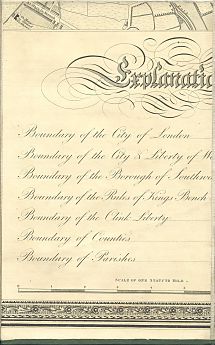 Explanatio
Boundary of the City of London
Boundary of the City & Liberty of W
Boundary of the Borough of Southwa
Boundary of the Rules of Kings Bench
Boundary of the Clink Liberty
Boundary of Counties
Boundary of Parishes
SCALE OF ONE STATUTE MILE